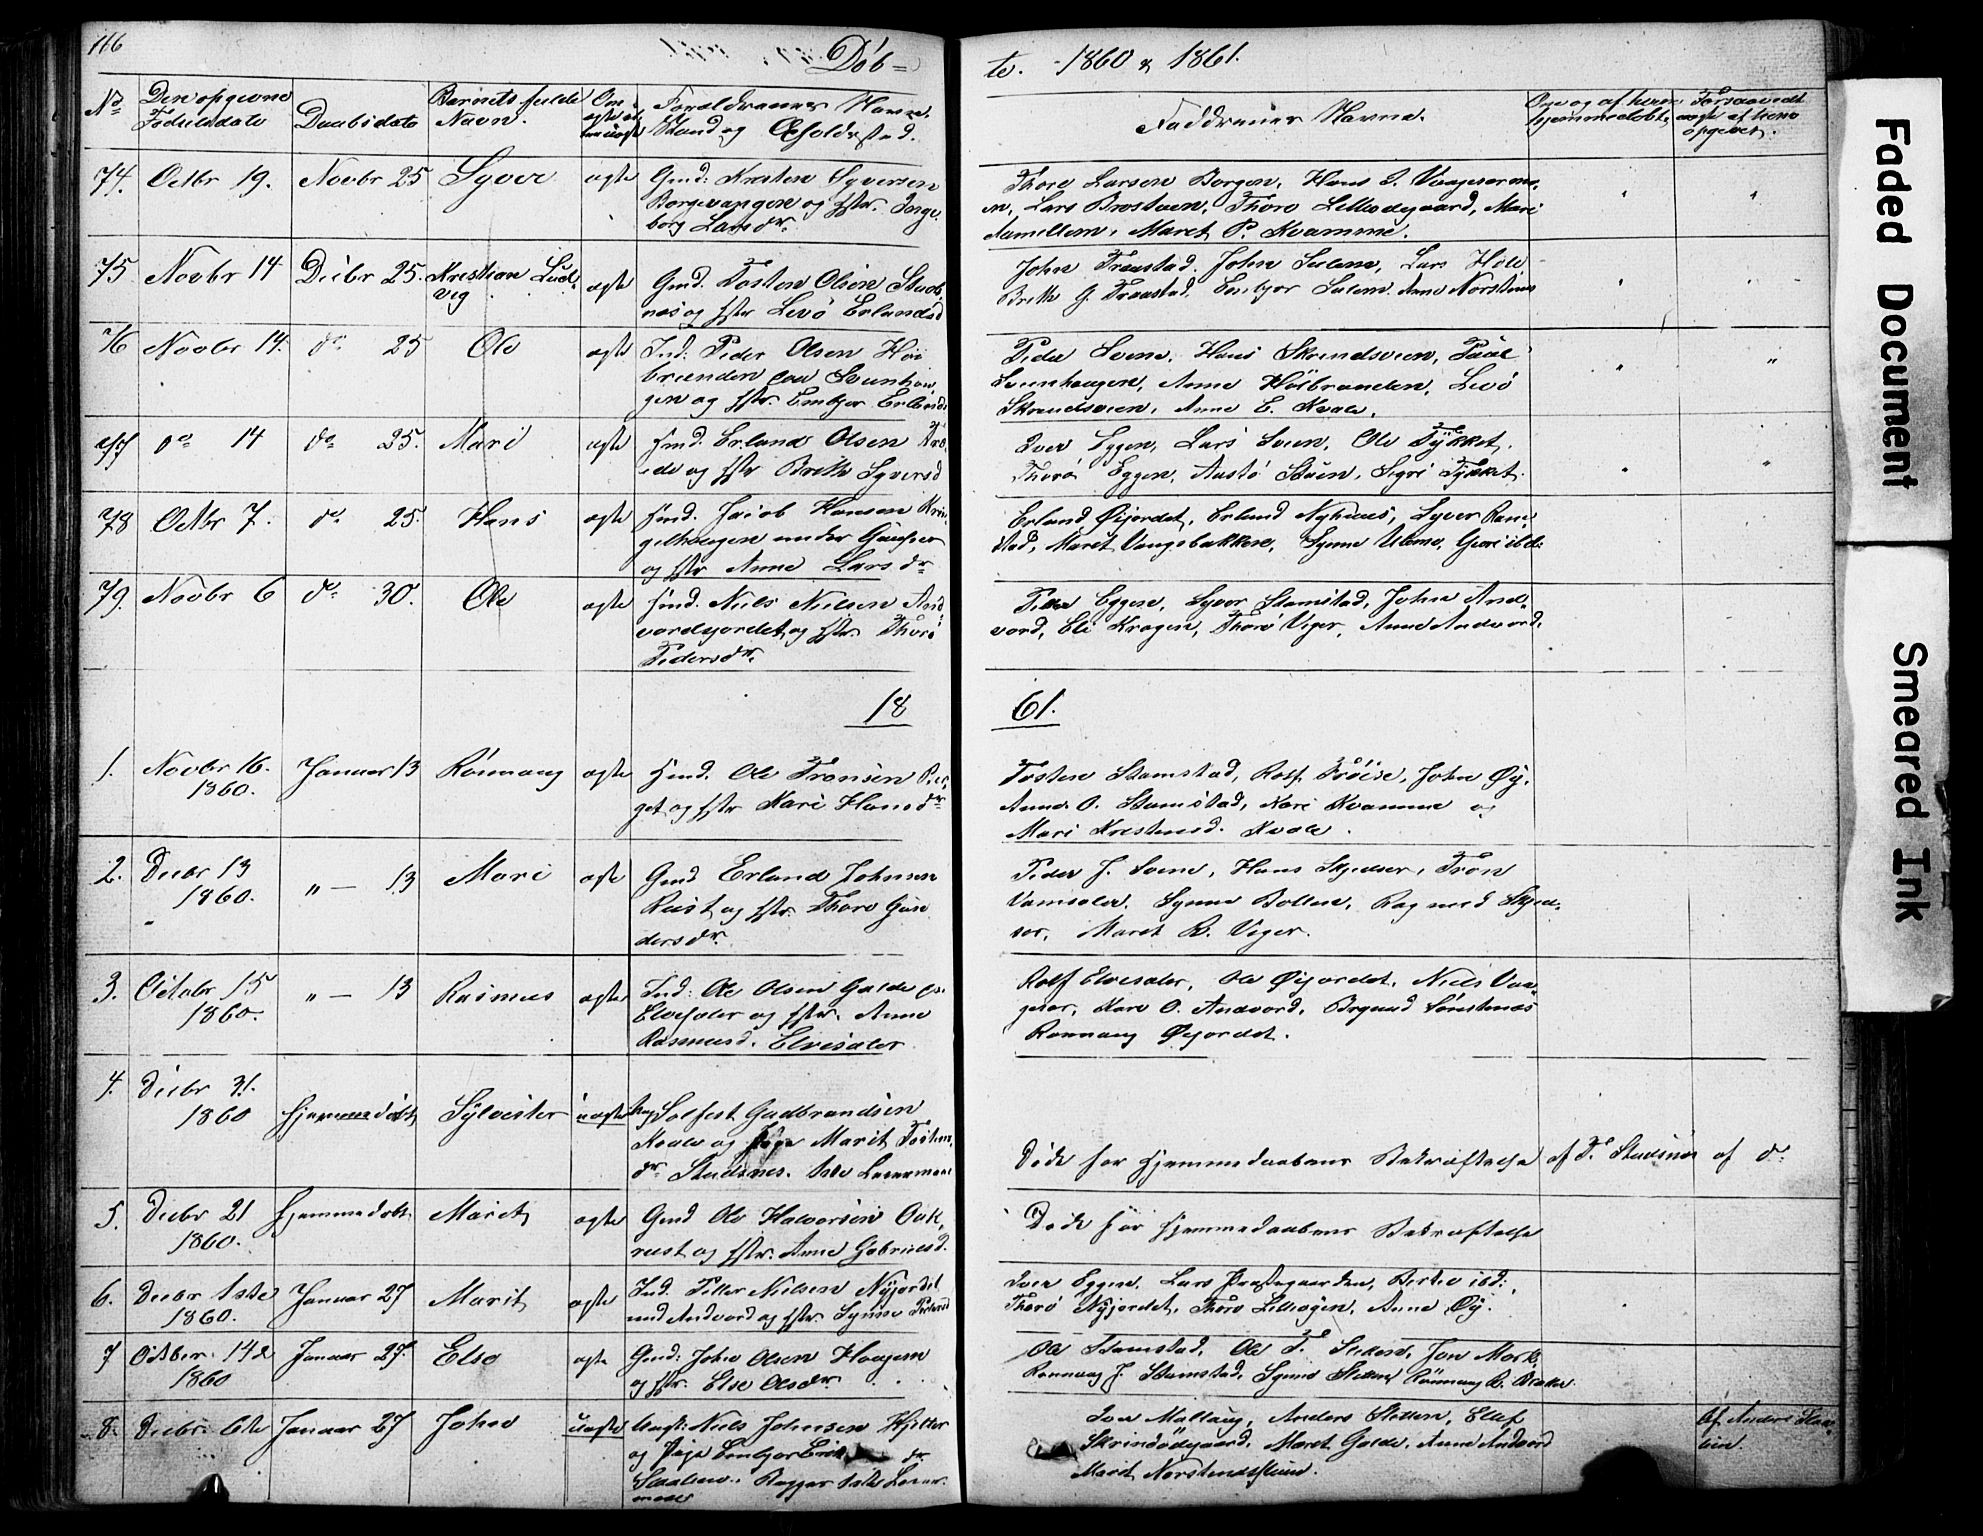 116
Döb= te. 1860 & 1861.
No
Den opgivne Fødselsdato
Daabsdato
Barnets fulde Navn.
Om ægte el. uægte
Forældrenes Navne, Stand og Opholdssted.
Faddrenes Navne.
Om og af hvem hjemmedöbt
74. Octbr 19. Novbr 25 Syver ægte Gmd: Kresten Syversen
Borgevangen og Hstr. Inge-
borg Larsdr.
Thore Larsen Borgen, Hans
Lars Brostuen, Thore Lilleødegaard, Mari
Maret P. Kvamme.
75. Novbr 14 Decbr 25. Kristian Lud-
vig ægte Gmd. Tosten Olsen Stads
nes og Hstr Livö Erlandsd
John Fraastad, John Sulem, Lars Hole
Brith G. Fraastad, Embjør Sulem. Anne Norstenes
76 Novbr 14. do 25 Ole ægte Ind: Peder Olsen Höi
og Hstr. Embjør Erlandsd
Peder Svene, Hans Skrindsveen, Paal
Sveenhaugen, Anne Höibranden, Livö
Skrindsveen, Anne E. Kvale.
77 do 14 do 25. Mari ægte Hmd. Erland Olsen
og Hstr Brith Syversd
Iver Eggen, Lars Sveen, Ole Fykket,
Thorö Eggen, Aastö Stuen, Sigri Fykket.
78 Octbr 7. do 25. Hans ægte Hmd. Jacob Hansen Krin
gelhaugen under Gaupar
og Hstr Anne Larsdr
Erland Øijordet, Erland Nyhuus, Syver Ram
stad, Maret Vangsbakken, Synne Ulemo, Guri ibd:
79. Novbr 6 do 30. Ole ægte Hmd. Niels Nielsen And
vordjordet og Hstr. Thorö
Pedersdr.
Peter Eggen, Syver Stamstad, John And-
vord, Eli Krogen, Thorö Viger, Anne Andvord.
18 61.
1. Novbr 16. 1860. Januar 13 Rönnaug ægte Hmd. Ole Tronsen
og Hstr Kari Hansdr
Tosten Stamstad, Rolf Fröise, John Øy.
Anne O. Stamstad, Kari Kvamme og
Mari Kristensd. Kvale.
2. Decbr 13 1860. " — 13 Mari ægte Gmd Erland Johnsen
Rust og Hstr. Thore Gun
dersdr.
Peder J. Svene, Hans Skjedser, Trön
Synne Botten, Ragnild Skjed-
ser, Maret R. Viger.
3. Octobr 15 1860. " — 13 Rasmus ægte Ind: Ole Olsen Galde
Elvesæter og Hstr. Anne
Rasmusd. Elvesæter
Rolf Elvesæter, Ole Øijordet, Niels Vaa-
gesar, Kari O. Andvord,
Rönnaug Øijordet.
4. Decbr 31. 1860 Hjemmedöbt Sylvester uægte Ung. Solfest Gudbrandsen
Kvale og Pige Marit Tosten
dr Stadsnes. 1ste Leiermaal
Döde før Hjemmedaabens Bekræftelse af T. Stadsnes af do
5. Decbr 21 1860. Hjemmedöbt. Marit ægte Gmd Ole Halvorsen Auk-
rust og Hstr. Anne Gabrielsd.
Döde før Hjemmedaabens Bekræftelse
6. Decbr 1ste 1860. Januar 27 Marit ægte Ind. Petter Nielsen Nyjordet
und Andvord og Hstr. Synne Pedersd
Iver Eggen, Lars Præstegaarden, Berte ibd:
Thorö Nyjordet, Thore Lilleøyen, Anne Øy.
7 October 14de 1860 Januar 27. Else ægte Gmd: John Olsen Haugen
og Hstr. Else Olsdr.
Ole Stamstad, Ole T. Sletten, Jon Mork
Rönnaug J. Stamstad, Synne Sletten Rönnaug R. Bakke
8. Decbr. 6te Januar 27 John uægte Ungk: Niels Johnsen Hjelter
og Pige Embjør
dr
Begges 1ste Leier-
maal
Iver Maltaug, Anders Sletten, Eluf
Skrindödegaard, Maret Galde, Anne Andvord
Marit Norstenesstuen.
Af Anders
Faded Document
Smeared Ink